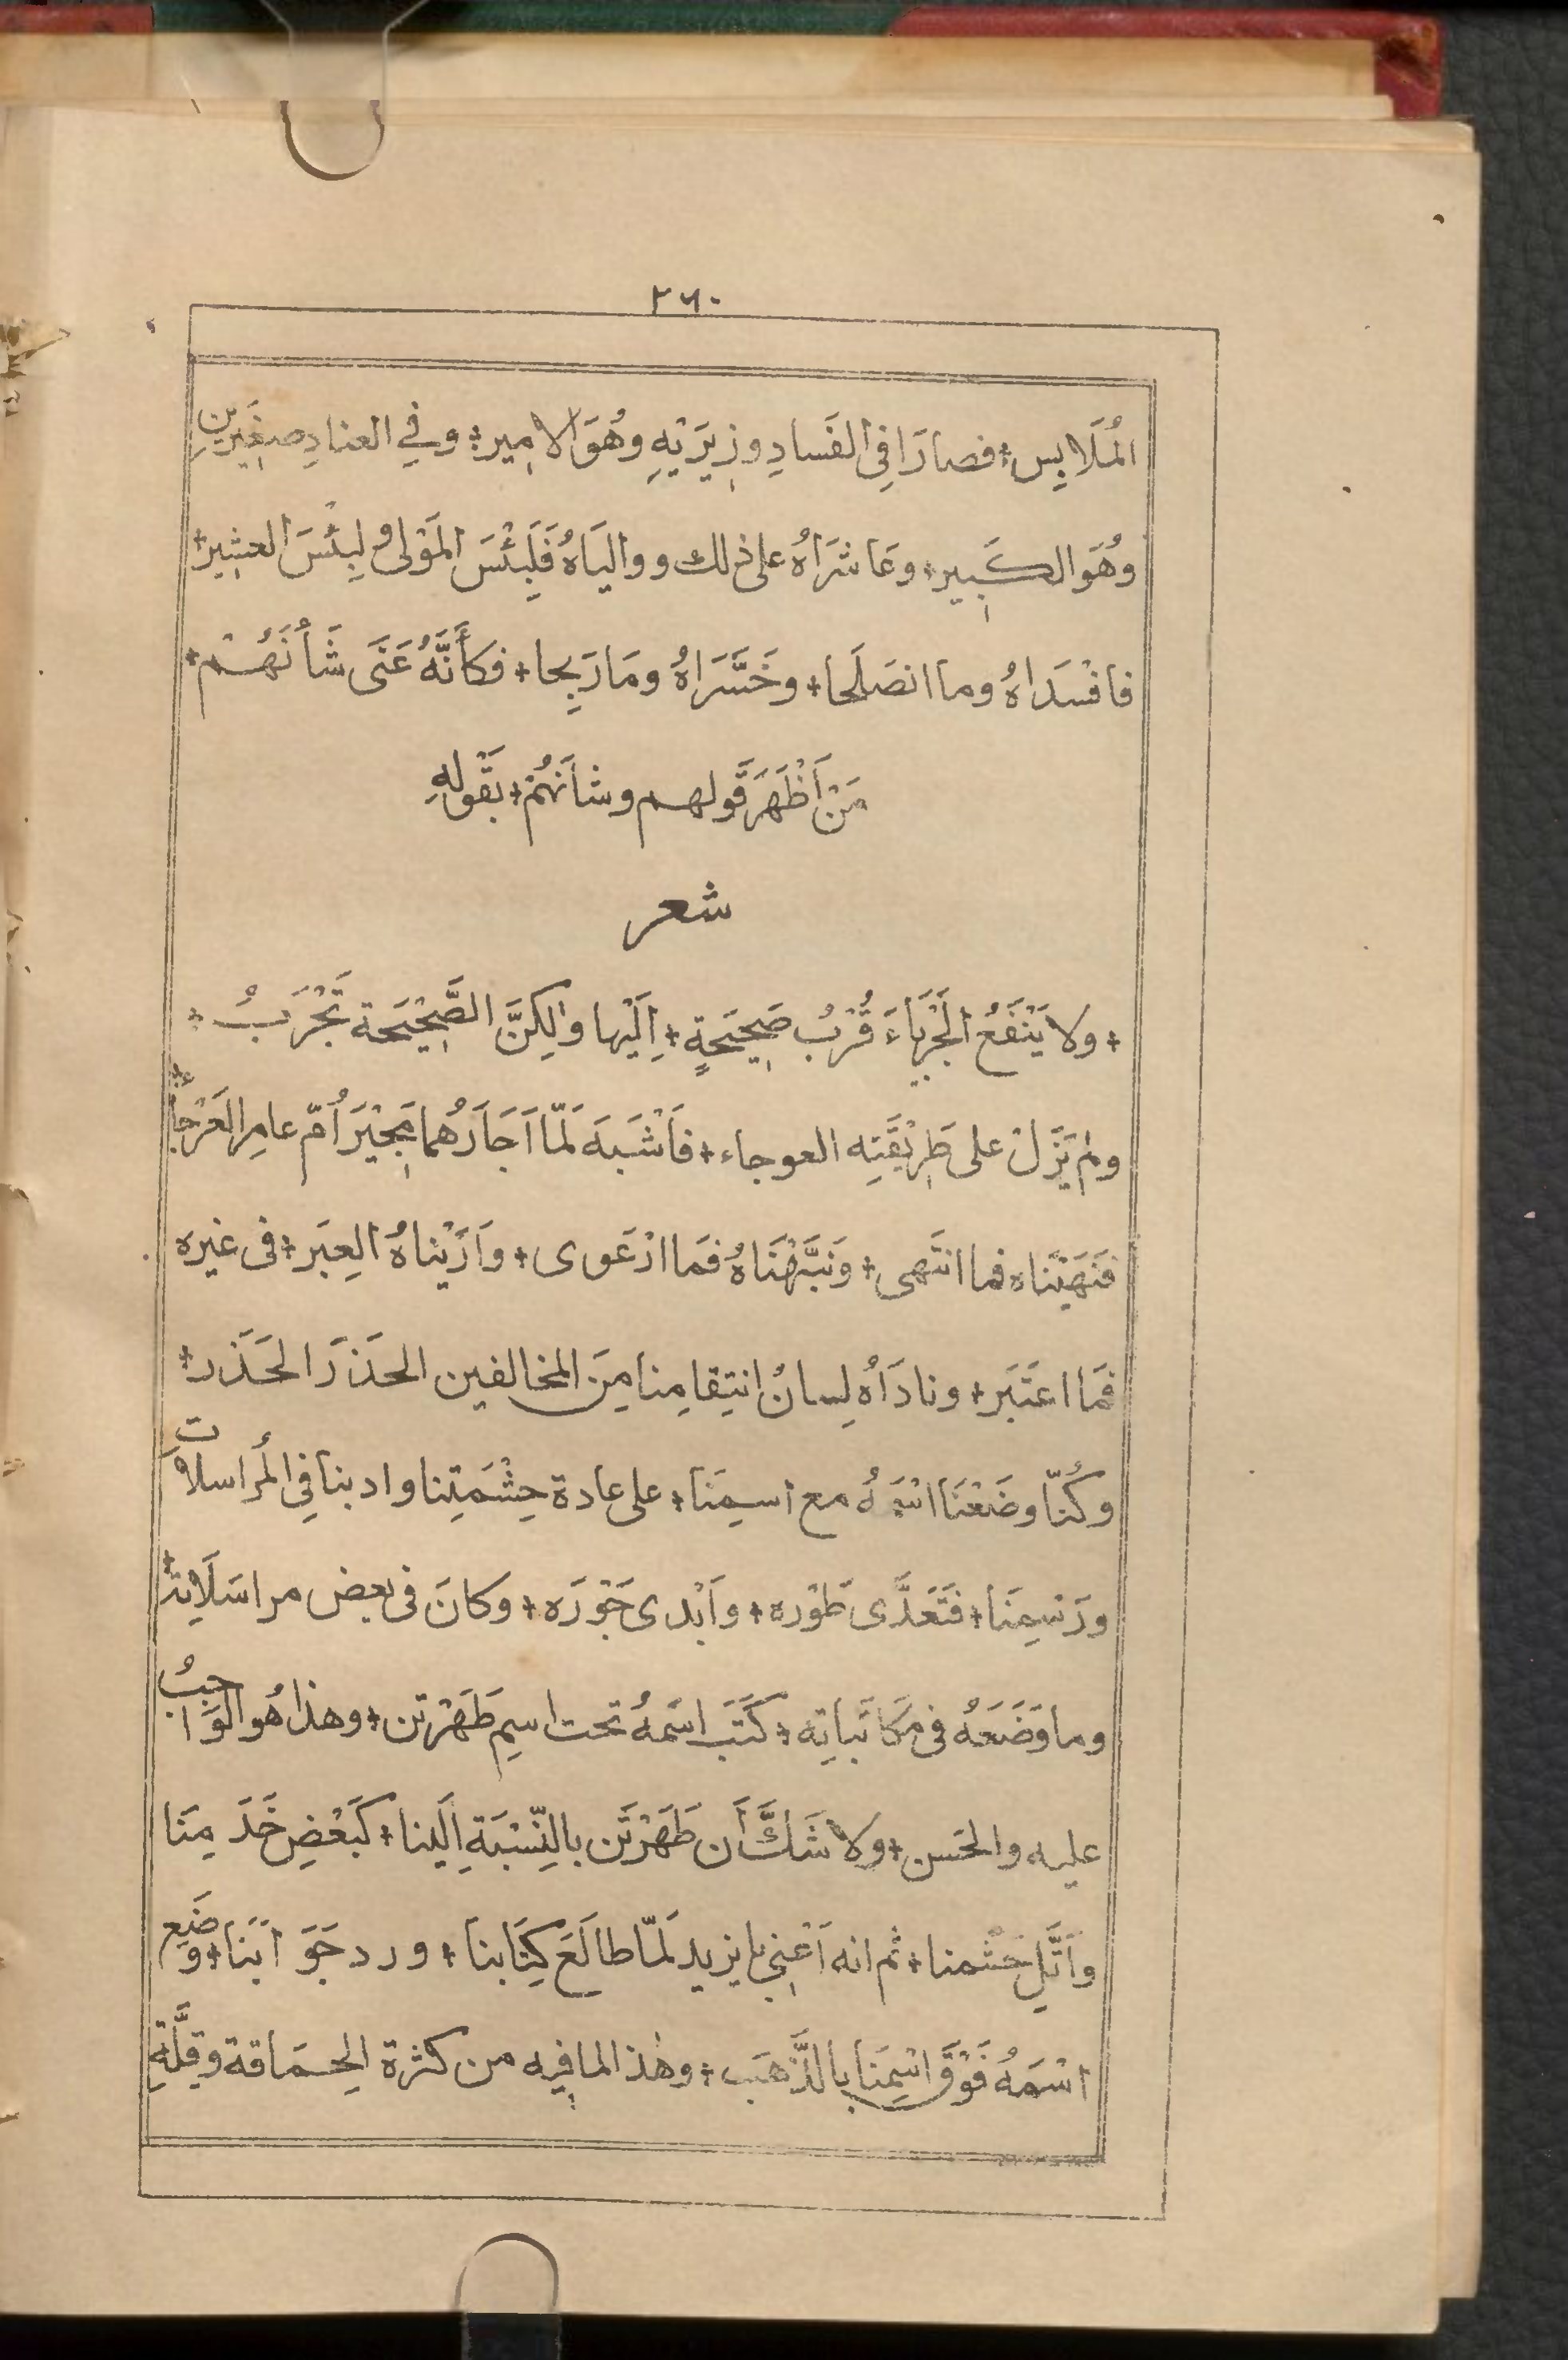 ٢٦٠
المُلَابِس؛ فصارَا فِى الفَسادِ وزِيرَيْهِ وهُوَ الامير؛ وفي العنادِ صغِيَريْنِ
وهُوَ الكَبير؛ وعَاشَرَاهُ على ذلك ووالیَاهُ فَلَبِئْسَ المَوْلى ولَبِئْسَ العشير؛
فافْسَدَاهُ وما انصَلَحا؛ وخَسَّرَاهُ ومَا رَبِحا؛ فكَأَنَّهُ عَنَى شَأْنَهُم؛
مَنْ أَظْهَرَ قَولهم وشأنَهُمْ؛ بقَوْلهِ
شعر
؛ ولا يَنْفَعُ الجَرْباءَ قُرْبُ صَحِيحَةٍ ؛ اِلَيْها ولكِنَّ الصَّحِيْحَة تَجْرَبُ ؛
ولم يَزَلْ على طَرِيْقَتِه العوجاء؛ فاَشْبَهَ لَمّا اَجَارَهُما مُجيْرَ أُمّ عامِر العَرْجَاء
فنَهَيْنَاه فما انتَهى؛ ونَبَّهْنَاهُ فمَا ارْعَوى؛ واَرَيْناهُ العِبَر؛ فى غيره
فمَا اعتَبَر؛ ونادَاهُ لِسانُ انتِقامِنا مِنَ المخالفين الحَذَرَ الحَذَر؛
وكُنّا وضَعْنَا اسْمَهُ مع اسمِنَا؛ على عادة حِشْمَتِنا وادبنا فِي المُراسلات
ورَسمِنَا؛ فتَعَدَّى طَوْره؛ واَبْدى جَوْرَه؛ وكانَ فى بعض مراسَلَاته؛
وما وَضَعَهُ فى مكَاتَباتِه؛ كَتَبَ اسْمهُ تحت اسمِ طَهَرْتن؛ وهذا هُو الوَاجِبُ
عليه والحَسن؛ ولا شَكَّ أَن طَهَرْتَن بالنِّسْبَةِ اِلَينا؛ كبَعْضِ خَدَمِنَا
واَقَلِّ حَشَمنا؛ ثم انه اَعْني بايزيد لَمّا طالَعَ كِتَابنا؛ ورد جَوَابَنا؛ وضَع
اسْمَهُ فَوْقَ اسْمِنَا بالذَّهَب؛ وهٰذا لما فيه من كثرة الحَماقة وقِلَّةِ